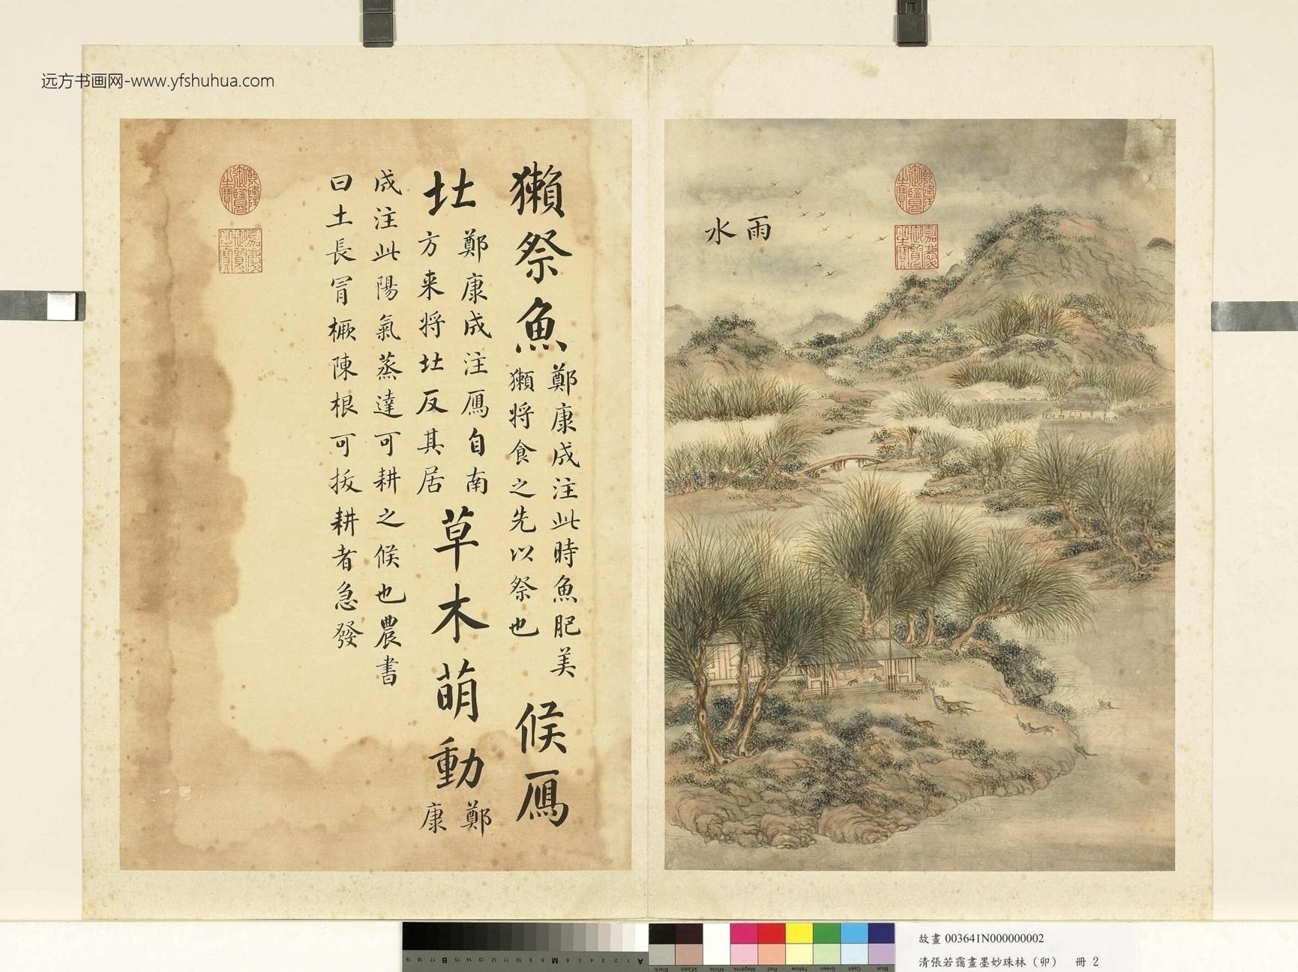 远方书画网-www.yfshuhua.com
雨水
乾隆御覽之寶
嘉慶御覽之寶
獺祭魚
鄭康成注此時魚肥美
獺將食之先以祭也
候鴈
北
鄭康成注鴈自南
方来將北反其居
草木萌動
鄭
康
成注此陽氣蒸達可耕之候也農書
曰土長冒橛陳根可拔耕者急發
乾隆御覽之寶
嘉慶御覽之寶
故畫 003641N000000002
清張若靄畫墨妙珠林（卯） 冊 2